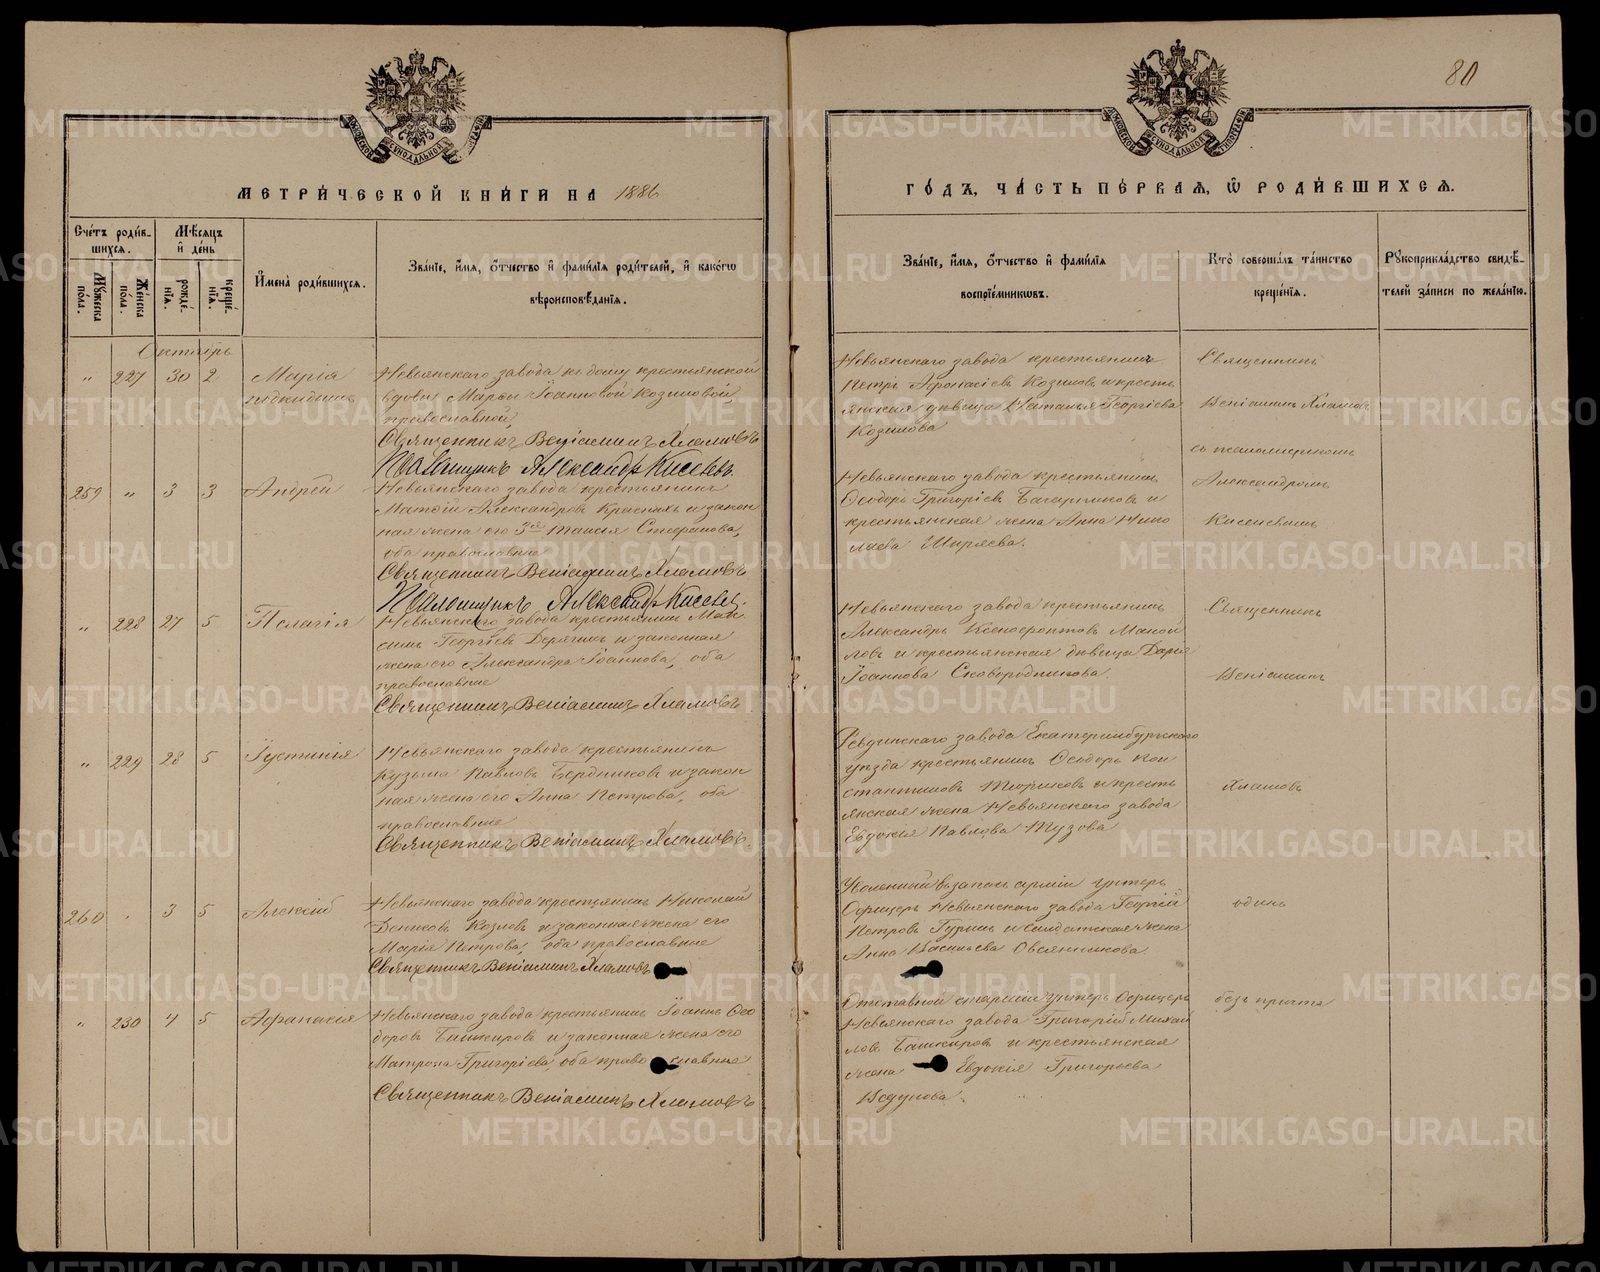 80
МЕТРИ́ЧЕСКОЙ КНИ́ГИ НА 1886
ГО́ДЪ, ЧА́СТЬ ПЕ́РВАѦ, Ѡ҆ РОДИ́ВШИХСѦ.
Сче́тъ роди́в-
шихсѧ.
Мѣ́сѧцъ
и҆ де́нь
Му́жеска
по́ла.
Же́нска
по́ла.
рожде́-
нїѧ.
креще́-
нїѧ.
И҆мена̀ роди́вшихсѧ.
Зва́нїе, и҆́мѧ, ѻ҆́тчество и҆ фами́лїѧ роди́телей, и҆ како́гѡ
вѣроисповѣ́данїѧ.
Зва́нїе, и҆́мѧ, ѻ҆́тчество и҆ фами́лїѧ
воспрїе́мникѡвъ.
Кто̀ соверша́лъ та́инство
креще́нїѧ.
Рꙋкоприкла́дство свидѣ́-
телей за́писи по жела́нїю.
Октябрь
" 227 30 2 Марія
подкидышъ
Невьянскаго завода къ дому крестьянской
вдовы Марѳы Іоанновой Козиловой,
православной,
Священникъ Веніаминъ Хламовъ
Псаломщикъ Александръ Киселевъ
Невьянскаго завода крестьянинъ
Петръ Афанасіевъ Козиловъ и кресть
янская дѣвица Наталья Георгіева
Козилова
Священникъ
Веніаминъ Хламовъ
съ псаломщикомъ
259 " 3 3 Андрей
Невьянскаго завода крестьянинъ
Матѳій Александровъ и закон
ная жена его Таисія Стефанова,
оба православные
Священникъ Веніаминъ Хламовъ
Псаломщикъ Александръ Киселевъ
Невьянскаго завода крестьянинъ
Ѳеодоръ Григоріевъ и
крестьянская жена Анна Нико
лаева Ширяева.
Александромъ
Киселевымъ
" 228 27 5 Пелагія
Невьянскаго завода крестьянинъ Мак
симъ Георгіевъ и законная
жена его Александра Іоаннова, оба
православные
Священникъ Веніаминъ Хламовъ
Невьянскаго завода крестьянинъ
Александръ Ксенофонтовъ Маной
ловъ и крестьянская дѣвица Дарія
Іоаннова Сковородникова.
Священникъ
Веніаминъ
" 229 28 5 Іустинія
Невьянскаго завода крестьянинъ
Кузьма Павловъ Бердниковъ и закон
ная жена его Анна Петрова, оба
православные
Священникъ Веніаминъ Хламовъ.
Ревдинскаго завода Екатеринбургскаго
уѣзда крестьянинъ Ѳеодоръ Кон
стантиновъ и кресть
янская жена Невьянскаго завода
Евдокія Павлова Тузова
Хламовъ
260 " 3 5 Алексій
Невьянскаго завода крестьянинъ Николай
Денисовъ Козловъ и законная жена его
Марія Петрова, оба православные
Священникъ Веніаминъ Хламовъ
Уволенный въ запасъ арміи унтеръ
Офицеръ Невьянскаго завода Георгій
Петровъ и солдатская жена
Анна Васильева Овсянникова.
одинъ
" 230 4 5 Афанасія
Невьянскаго завода крестьянинъ Іоаннъ Ѳео
доровъ Башкировъ и законная жена его
Матрона Григоріева, оба православные
Священникъ Веніаминъ Хламовъ
Отставной старшій унтеръ Офицеръ
Невьянскаго завода Григорій Михай
ловъ Башкировъ и крестьянская
жена Евдокія Григорьева
безъ причта
METRIKI.GASO-URAL.RU